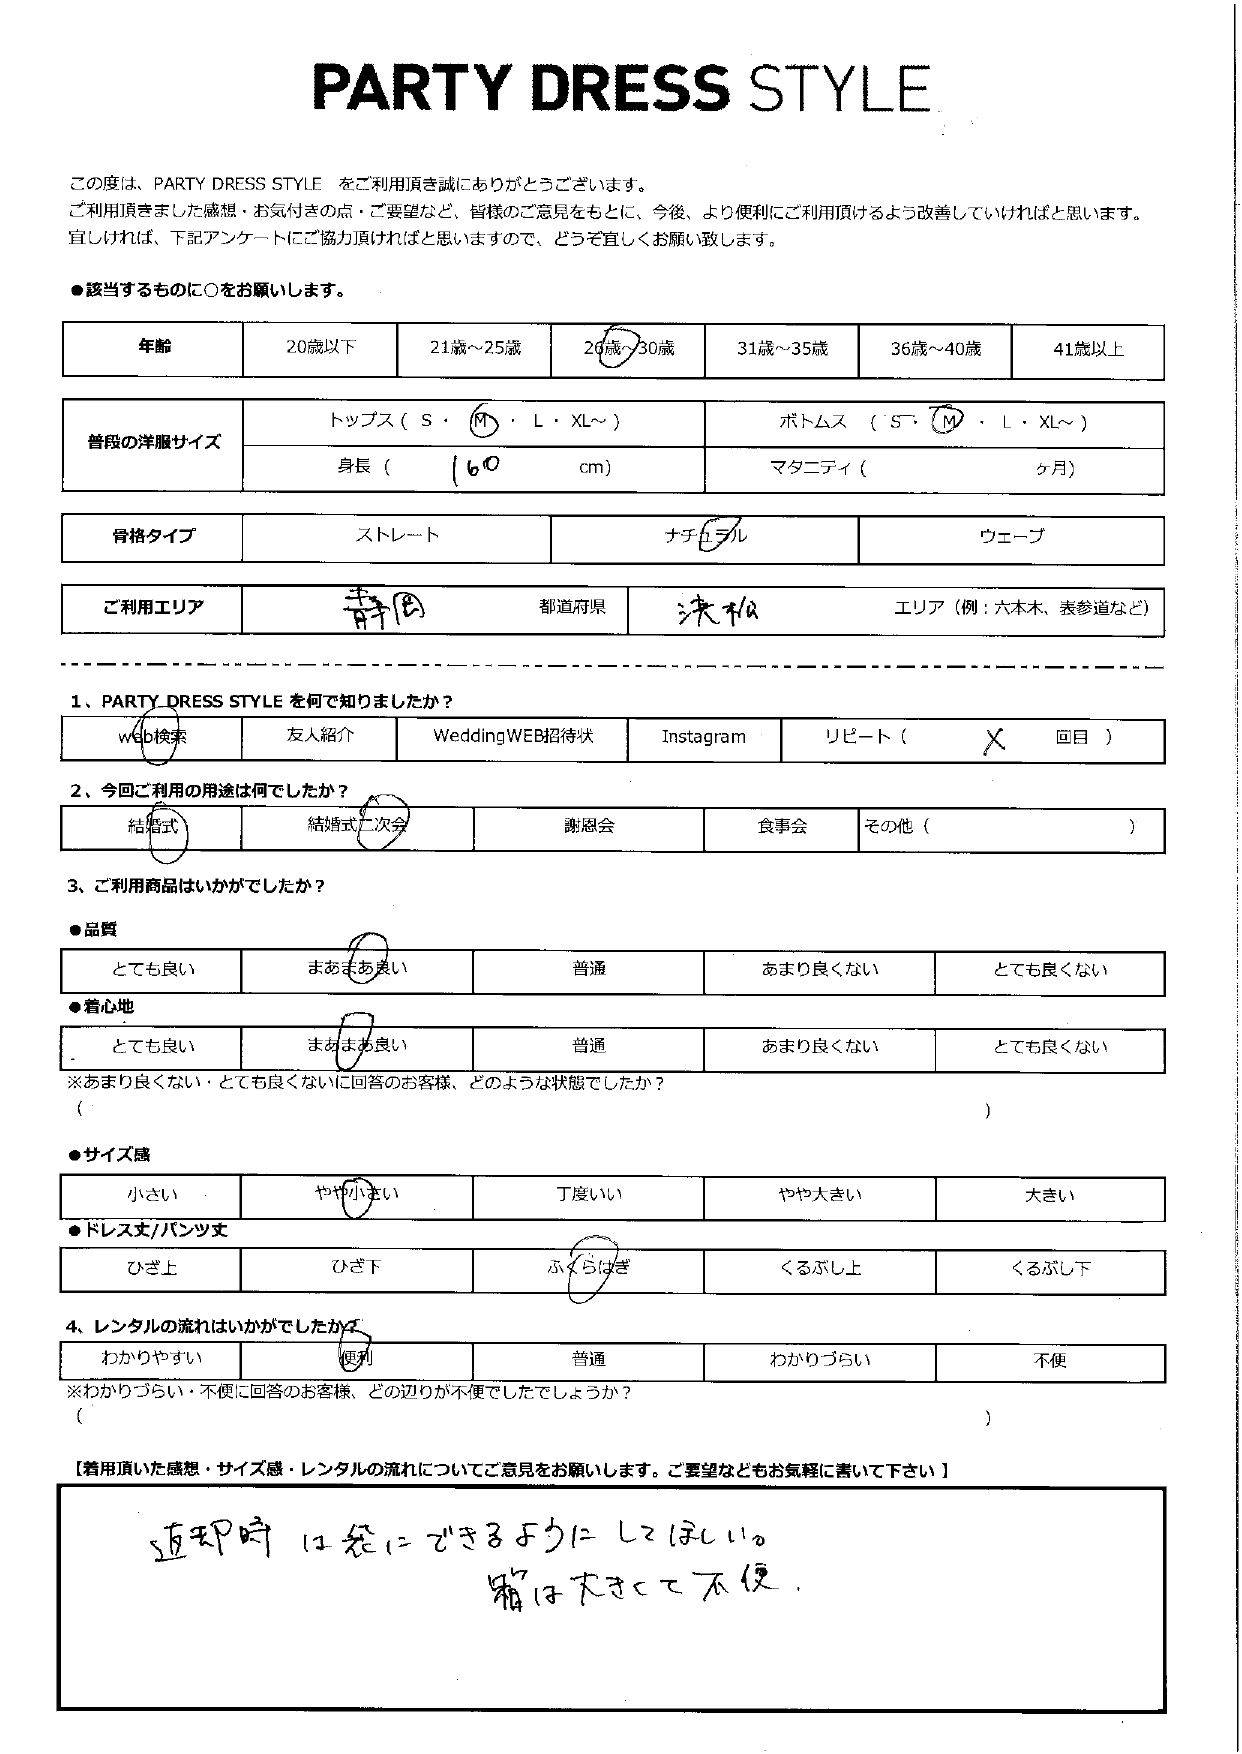 PARTY DRESS STYLE
この度は、PARTY DRESS STYLE をご利用頂き誠にありがとうございます。
ご利用頂きました感想・お気付きの点・ご要望など、皆様のご意見をもとに、今後、より便利にご利用頂けるよう改善していければと思います。
宜しければ、下記アンケートにご協力頂ければと思いますので、どうぞ宜しくお願い致します。
●該当するものに○をお願いします。
年齢 20歳以下 21歳～25歳 26歳～30歳 31歳～35歳 36歳～40歳 41歳以上
普段の洋服サイズ トップス ( S ・ M ・ L ・ XL～ ) ボトムス ( S ・ M ・ L ・ XL～ )
身長 ( 160 cm) マタニティ ( ヶ月)
骨格タイプ ストレート ナチュラル ウェーブ
ご利用エリア 静岡 都道府県 浜松 エリア（例：六本木、表参道など）
1、PARTY DRESS STYLE を何で知りましたか？
web検索 友人紹介 WeddingWEB招待状 Instagram リピート（ X 回目 ）
2、今回ご利用の用途は何でしたか？
結婚式 結婚式二次会 謝恩会 食事会 その他（ ）
3、ご利用商品はいかがでしたか？
●品質
とても良い まあまあ良い 普通 あまり良くない とても良くない
●着心地
とても良い まあまあ良い 普通 あまり良くない とても良くない
※あまり良くない・とても良くないに回答のお客様、どのような状態でしたか？
( )
●サイズ感
小さい やや小さい 丁度いい やや大きい 大きい
●ドレス丈/パンツ丈
ひざ上 ひざ下 ふくらはぎ くるぶし上 くるぶし下
4、レンタルの流れはいかがでしたか？
わかりやすい 便利 普通 わかりづらい 不便
※わかりづらい・不便に回答のお客様、どの辺りが不便でしたでしょうか？
( )
【着用頂いた感想・サイズ感・レンタルの流れについてご意見をお願いします。ご要望などもお気軽に書いて下さい 】
返却時は袋にできるようにしてほしい。
箱は大きくて不便.